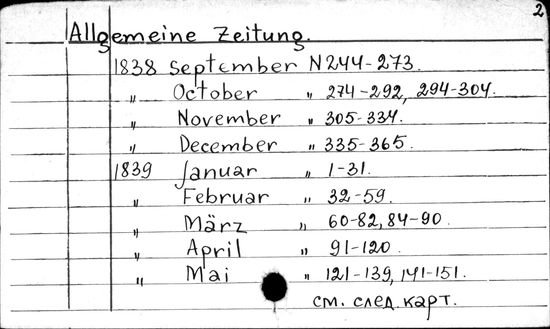 2
Allgemeine Zeitung.
1838 September N 244-273.
„ October „ 274-292, 294-304.
„ November „ 305-334.
„ December „ 335-365.
1839 Januar „ 1-31.
„ Februar „ 32-59.
„ März „ 60-82, 84-90.
„ April „ 91-120.
„ Mai „ 121-139, 141-151.
см. след. карт.